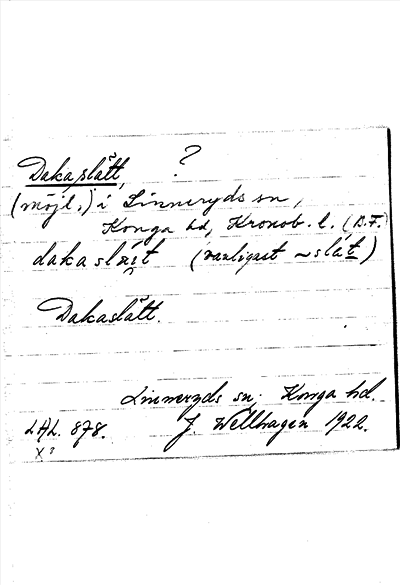 Dakaslått, ?
(möjl.) i Linneryds sn,
Konga hd, Kronob. l. (D.F.)
dakaslåt (vanligast ~ slåt)
Dakaslått.
Linneryds sn. Konga hd.
LAL. 878. J. Wellhagen 1922.